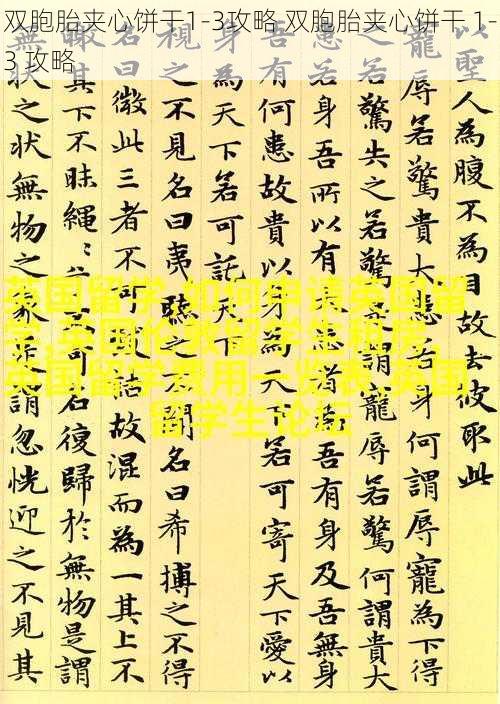 双胞胎夹心饼干1-3攻略,双胞胎夹心饼干 1-
3 攻略
英国留学,如何申请英国留
学,英国伦敦留学生租房,
英国留学费用一览表,英国
留学生论坛
以聖人為腹不為目故去彼取此
寵辱若驚貴大患若身何謂辱寵為下得
之若驚失之若驚是謂寵辱若驚何謂貴大
患若身吾所以有大患者為吾有身及吾無身
吾有何患故貴以身為天下若可寄天下愛以
身為天下若可託天下
視之不見名曰夷聽之不聞名曰希搏之不得
名曰微此三者不可致詰故混而為一其上不
其下不昧繩〻不可名復歸於無物是謂
狀之狀無物之象是謂忽恍迎之不見其